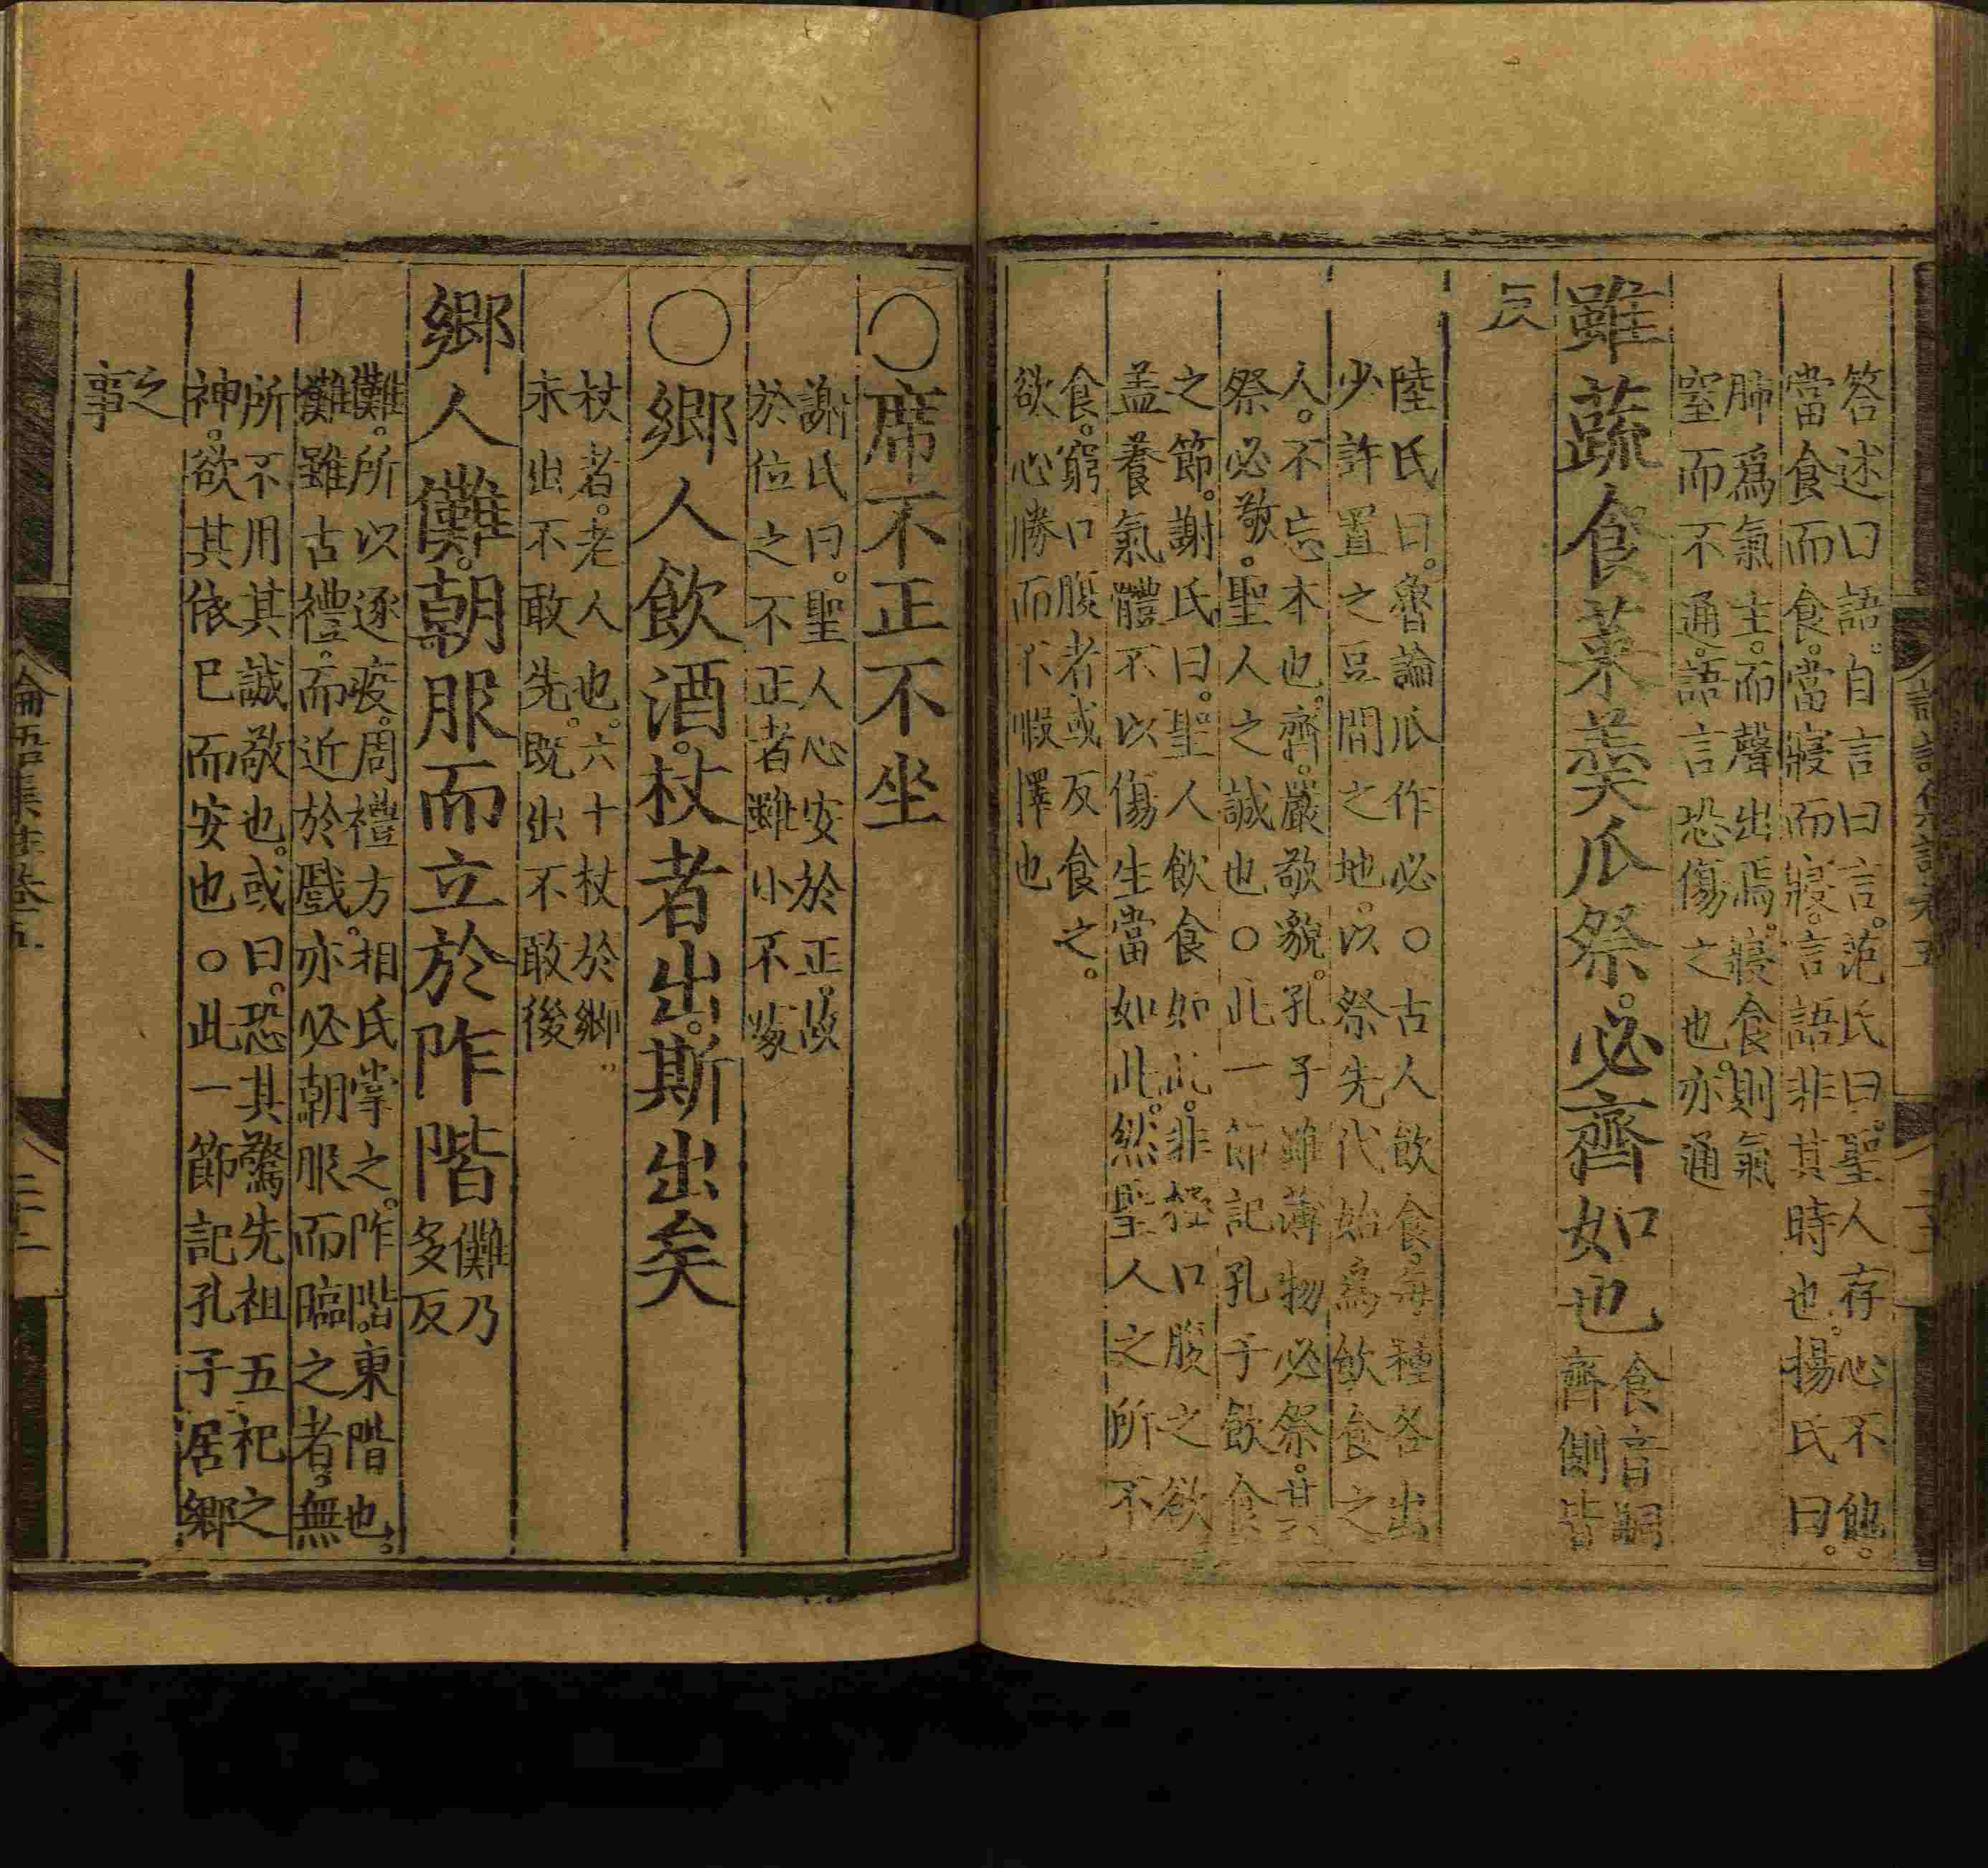 答述曰語。自言曰言。范氏曰。聖人存心不他。
當食而食。當寢而寢。言語非其時也。楊氏曰。
肺爲氣主。而聲出焉。寢食則氣
窒而不通。語言恐傷之也。亦通
雖蔬食菜羹瓜祭。必齊如也
食音嗣
齊側皆
反
陸氏曰。魯論瓜作必○古人飲食。每種各出
少許置之豆間之地。以祭先代始爲飲食之
人。不忘本也。齊。嚴敬貌。孔子雖薄物必祭。其
祭必敬。聖人之誠也○此一節記孔子飲食
之節。謝氏曰。聖人飲食如此。非極口腹之欲
盖養氣體不以傷生當如此。然聖人之所不
食。窮口腹者或反食之。
欲心勝而不暇擇也
○席不正不坐
謝氏曰。聖人心安於正。故
於位之不正者雖小不處
○鄉人飲酒。杖者出。斯出矣
杖者。老人也。六十杖於鄉。
未出不敢先。既出不敢後
鄉人儺。朝服而立於阼階
儺乃
多反
儺。所以逐疫。周禮方相氏掌之。阼階。東階也。
儺雖古禮。而近於戲。亦必朝服而臨之者。無
所不用其誠敬也。或曰。恐其驚先祖五祀之
神。欲其依已而安也○此一節記孔子居鄉
之
事
論語集註卷五
二十二